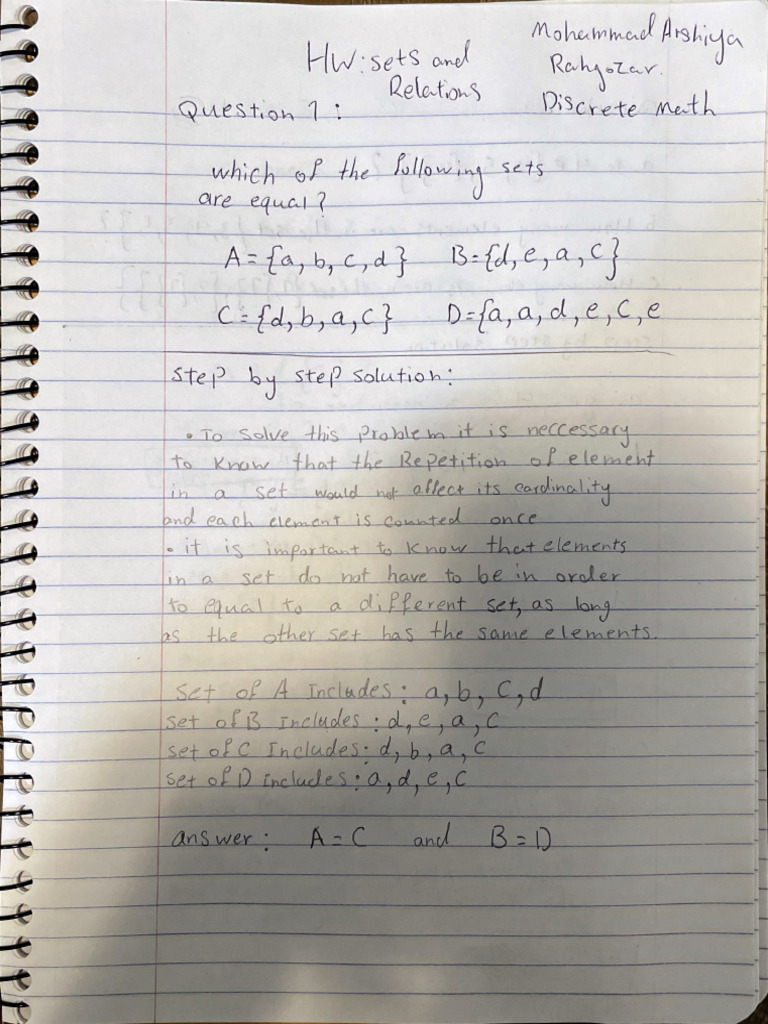 Mohammad Arshiya
Rahgozar.
Discrete Math
HW: sets and
Relations
Question 1:
which of the following sets
are equal?
A = {a, b, c, d} B = {d, e, a, c}
C = {d, b, a, c} D = {a, a, d, e, c, e
Step by step solution:
• To solve this problem it is neccessary
to know that the Repetition of element
in a set would not affect its cardinality
and each element is counted once
• it is important to know that elements
in a set do not have to be in order
to equal to a different set, as long
as the other set has the same elements.
set of A Includes: a, b, c, d
set of B Includes: d, e, a, c
set of C Includes: d, b, a, c
set of D includes: a, d, e, c
answer: A = C and B = D